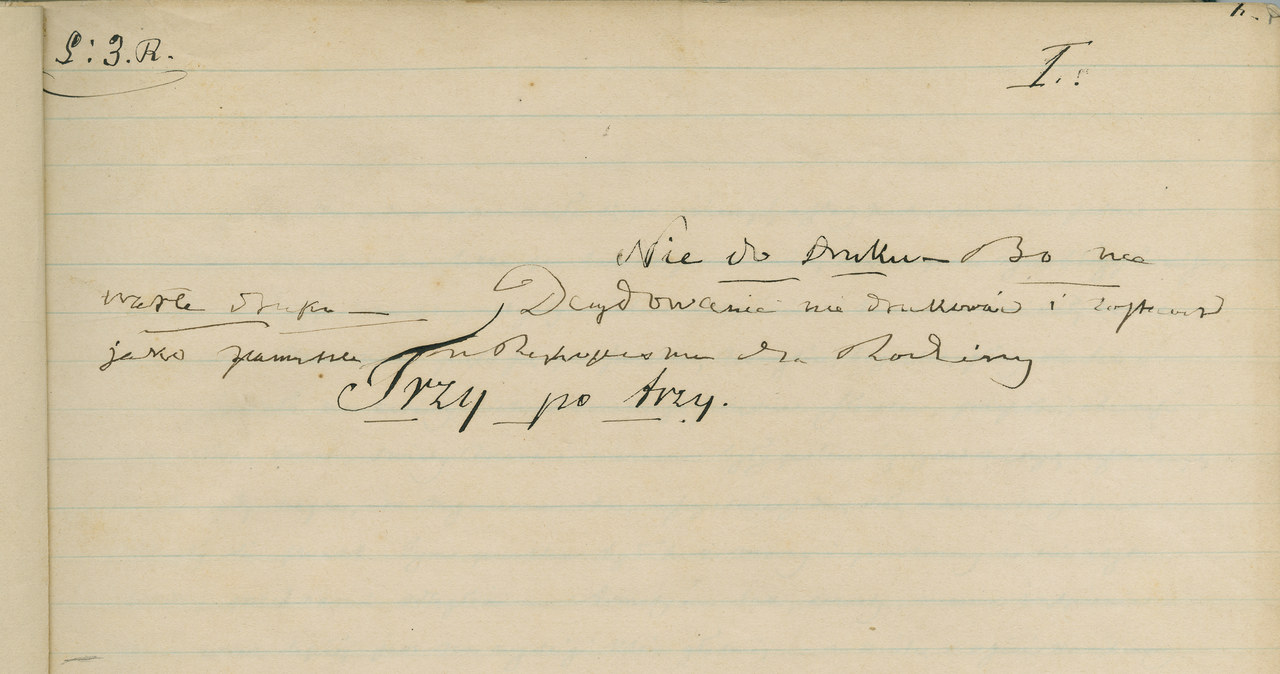 I.
Nie do druku – Bo nie
warte druku – Decydowanie nie drukować i zostawić
jako w Rękopismie dla Rodziny
Trzy po trzy.